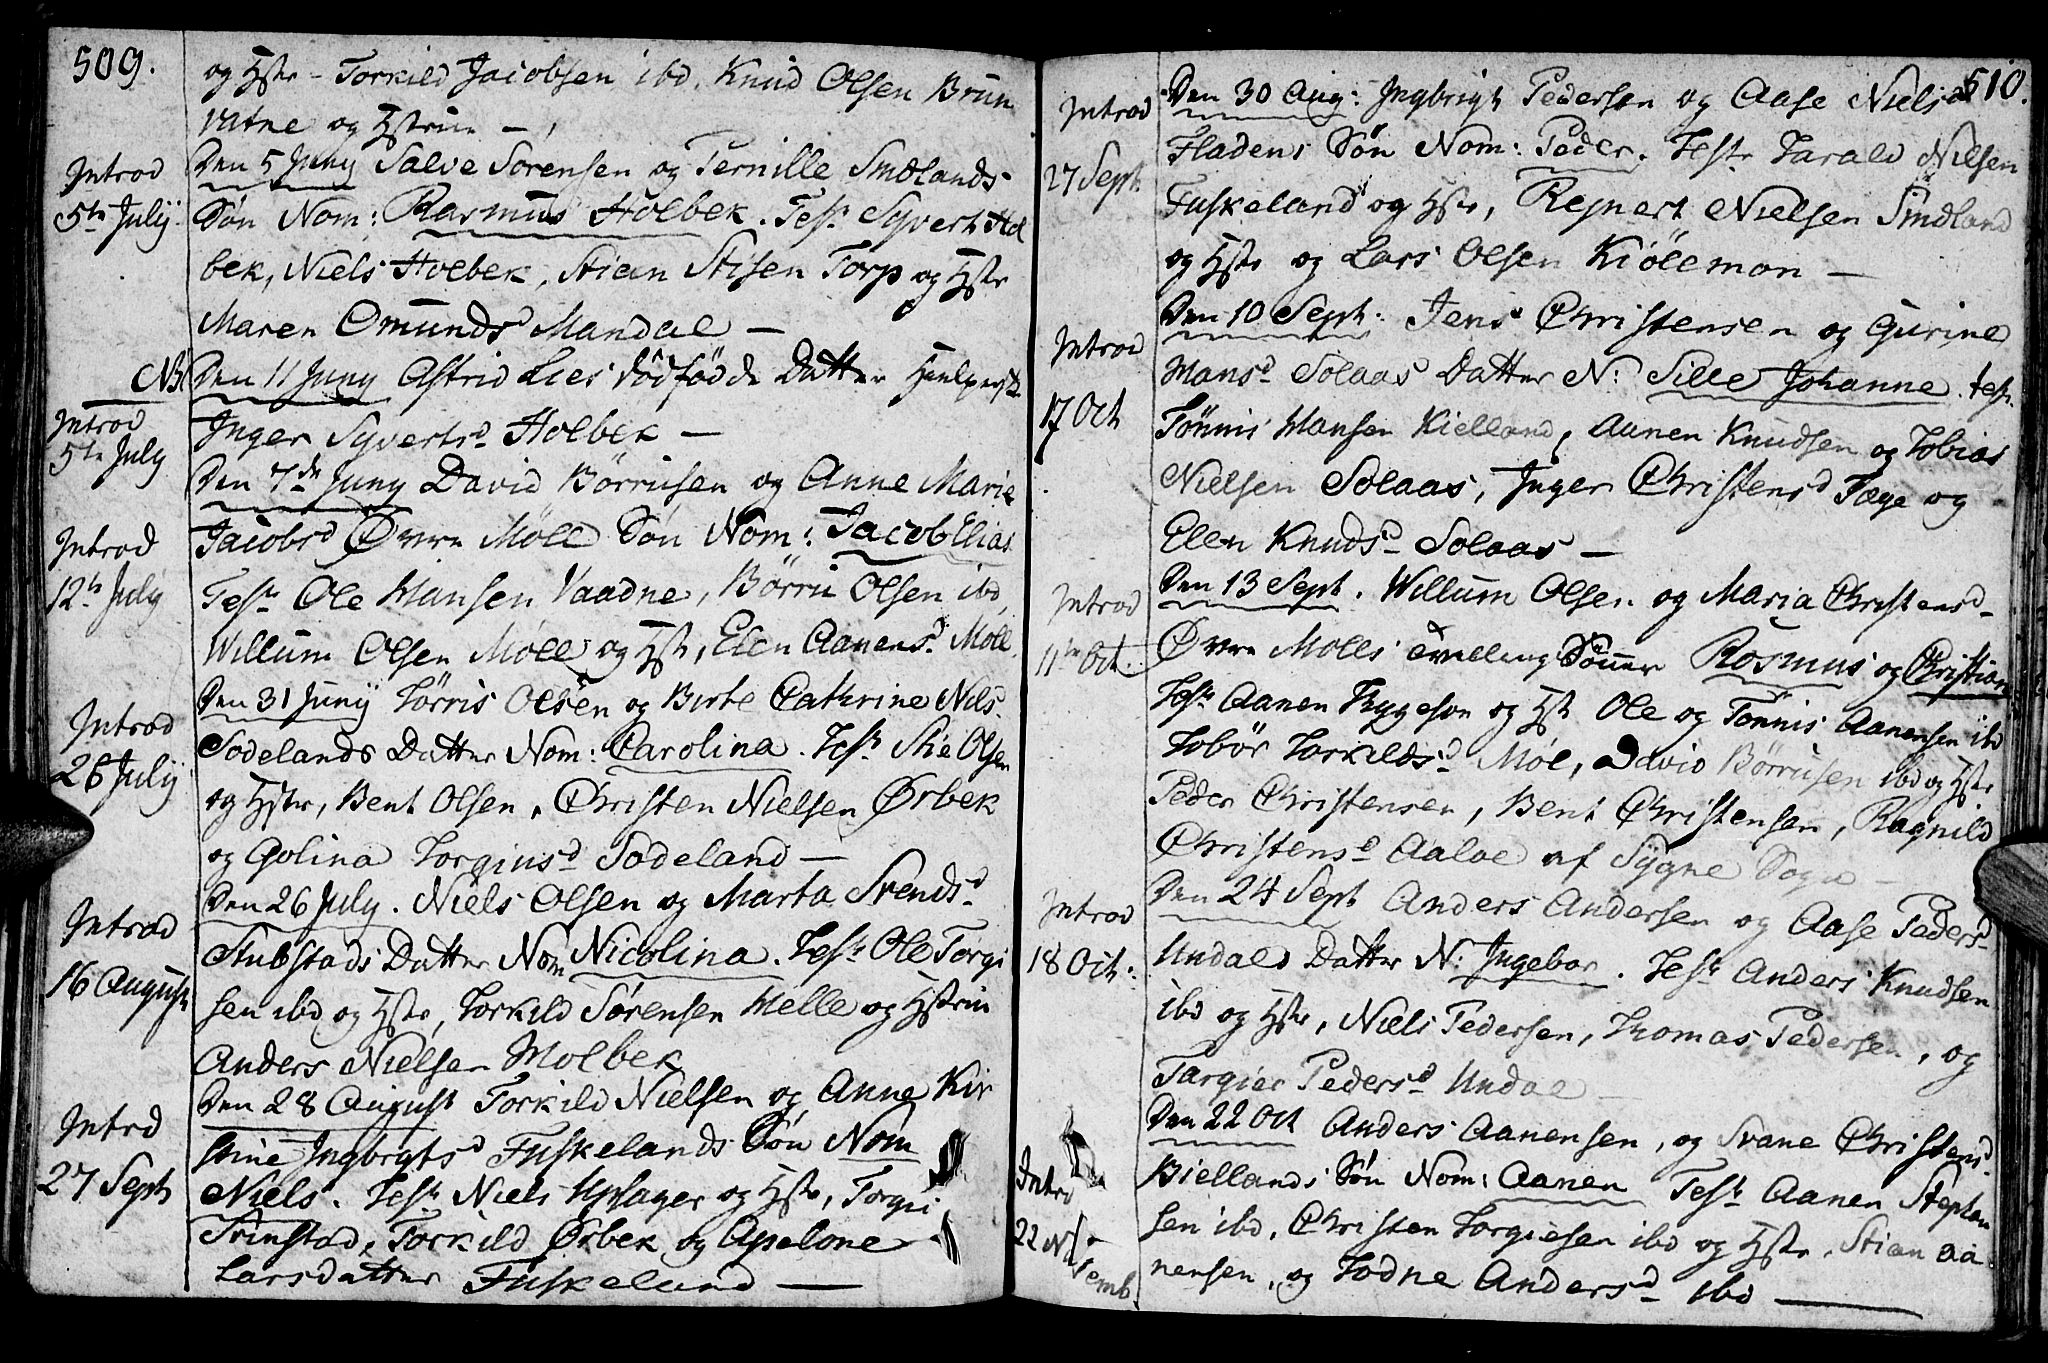 509.
og Hstr - Torkild Jacobsen ibd. Knud Olsen Brun
vatne og Hstrue —
Introd
5te July
Den 5 Juny Salve Sørensen og Pernille Smdlands
Søn Nom: Rasmus Holbek. Test Syvert Hol
bek, Niels Holbek, Stian Stisen Torp og Hstr
Maren Omunds Mandal —
NB
Den 11 Juny Astrid Lies dödfödde Datter
Introd
5te July
Inger Syvertsd Holbek —
Den 7de Juny David Börrusen og Anne Marie
Introd
12te July
Jacobsd Øvre Möll Søn Nom: Jacob Elias
Test Ole Hansen Vaadne, Börru Olsen ibd,
Willum Olsen Möll og Hstr, Elen Aanensd Moll.
Introd
26 July
Den 31 Juny Törris Olsen og Birte Cathrine Nils
Sodelands Datter Nom: Carolina. Test Stie Olsen
og Hstr, Bent Olsen, Christen Nielsen Ørbek
og Golina Torgiusd Sodeland —
Introd
16 August
Den 26 July. Niels Olsen og Marta Svendsd
Stubstads Datter Nom Nicolina. Test Ole Torgi
sen ibd og Hstr, Torkild Sörensen Helle og Hstrue
Anders Nielsen Molbek
Introd
27 Sept
Den 28 August Torkild Nielsen og Anne Kir
stine Ingbrgtsd Fuskelands Søn Nom
Niels. Test Niels Upsager og Hstr, Torgiu
Trinstad, Torkild Ørbek og Apelone
Larsdatter Fuskeland —
510.
Introd
27 Sept
Den 30 Aug: Ingbrigt Pedersen og Aase Nielsd
Fladens Søn Nom: Peder. Test Tarald Nielsen
Fuskeland og Hstr, Rejnert Nielsen Smdland
og Hstr og Lars Olsen Kiölemon —
Introd
17 Oct
Den 10 Sept: Jens Christensen og Gurine
Hansd Solaas Datter N: Sille Johanne. test.
Tönnis Hansen Kielland, Aanen Knudsen og Tobias
Nielsen Solaas, Inger Christensd Fæge og
Elen Knudsd Solaas —
Introd
11te Oct.
Den 13 Sept. Willum Olsen og Maria Christensd
Øvre Molls Tvilling Sönner Rasmus og Christian
Test Aanen Thygeson og Hstr Ole og Tönnis Aanensen ibd
Tobör Torkildsd Möl, David Börrusen ibd og Hstr
Peder Christensen, Bent Christensen, Ragnild
Christensd Aaloe af Sygne Sogn —
Introd
18 Oct:
Den 24 Sept Anders Andersen og Aase Pedersd
Undals Datter N: Ingebor. Test Anders Knudsen
ibd og Hstr, Niels Pedersen, Thomas Pedersen, og
Targier Pedersd Undal
Introd
22 Novemb
Den 22 Oct Anders Aanensen, og Svane Christensd
Biellands Søn Nom: Aanen Test Aanen Stephan
sen ibd, Christen Torgiesen ibd og Hstr. Stian Aa
nensen, og Todne Andersd ibd —